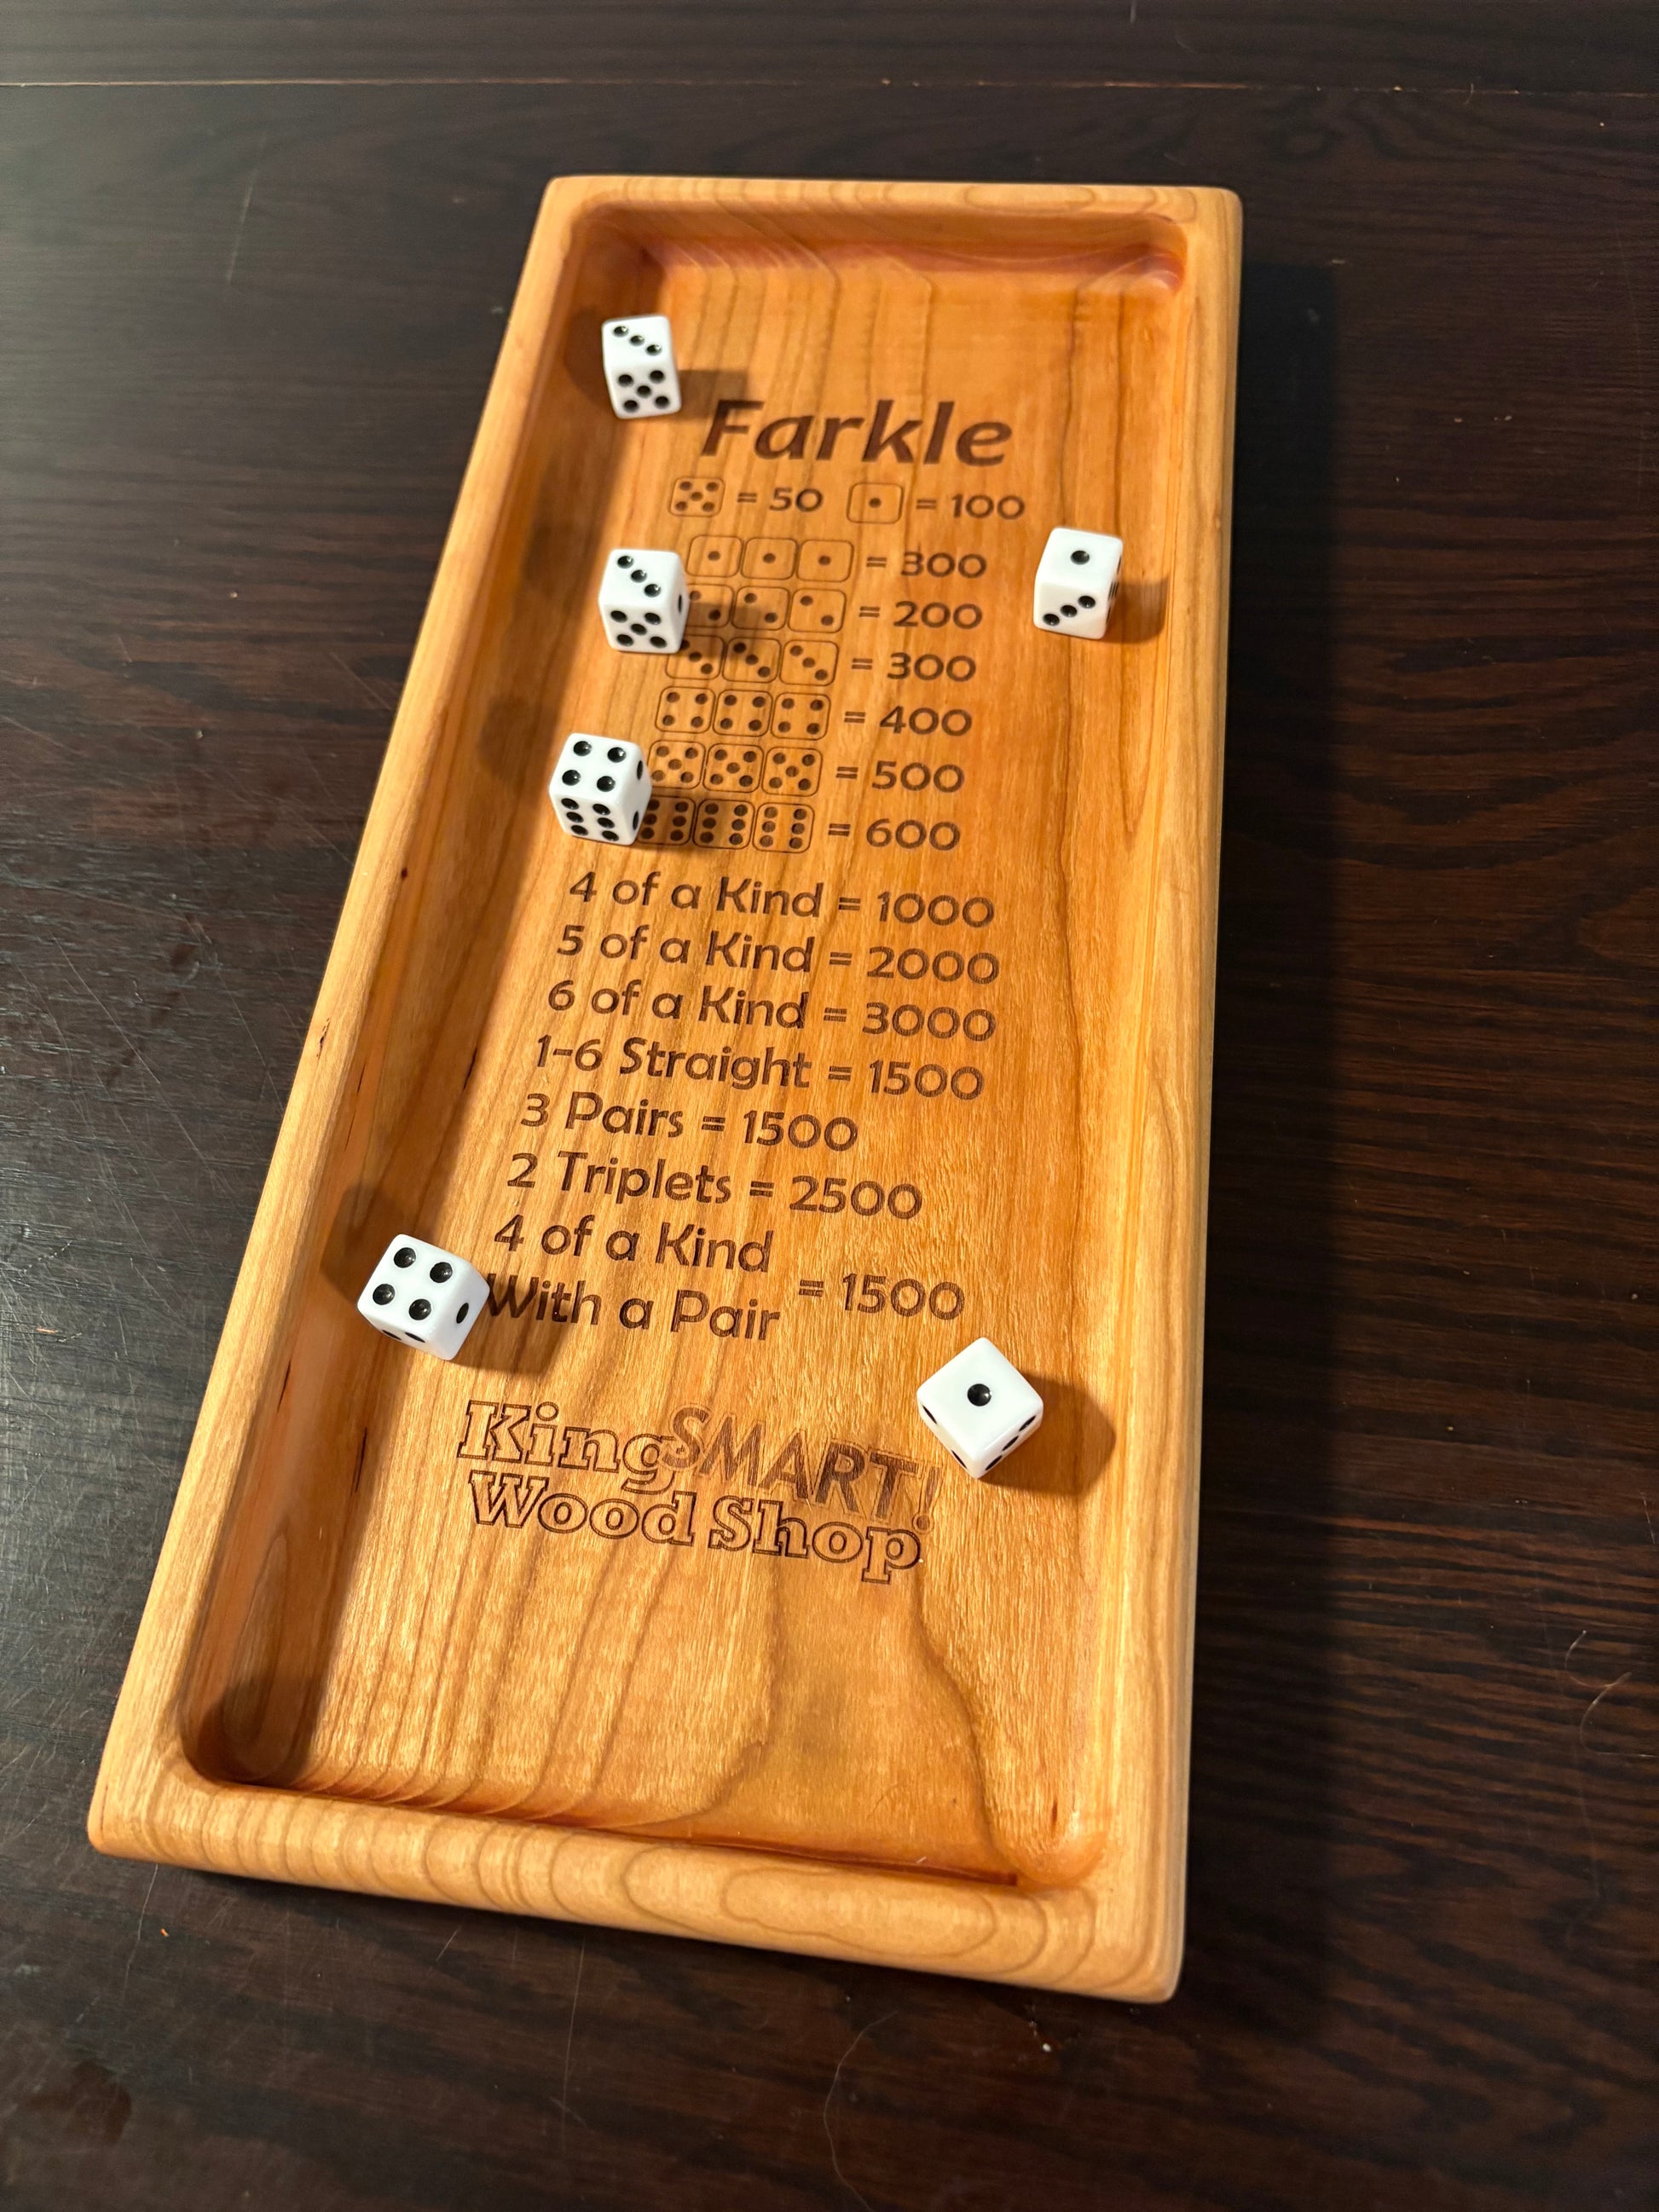 Farkle
= 50 = 100
= 300
= 200
= 300
= 400
= 500
= 600
4 of a Kind = 1000
5 of a Kind = 2000
6 of a Kind = 3000
1-6 Straight = 1500
3 Pairs = 1500
2 Triplets = 2500
4 of a Kind
With a Pair = 1500
KingSMART!
Wood Shop